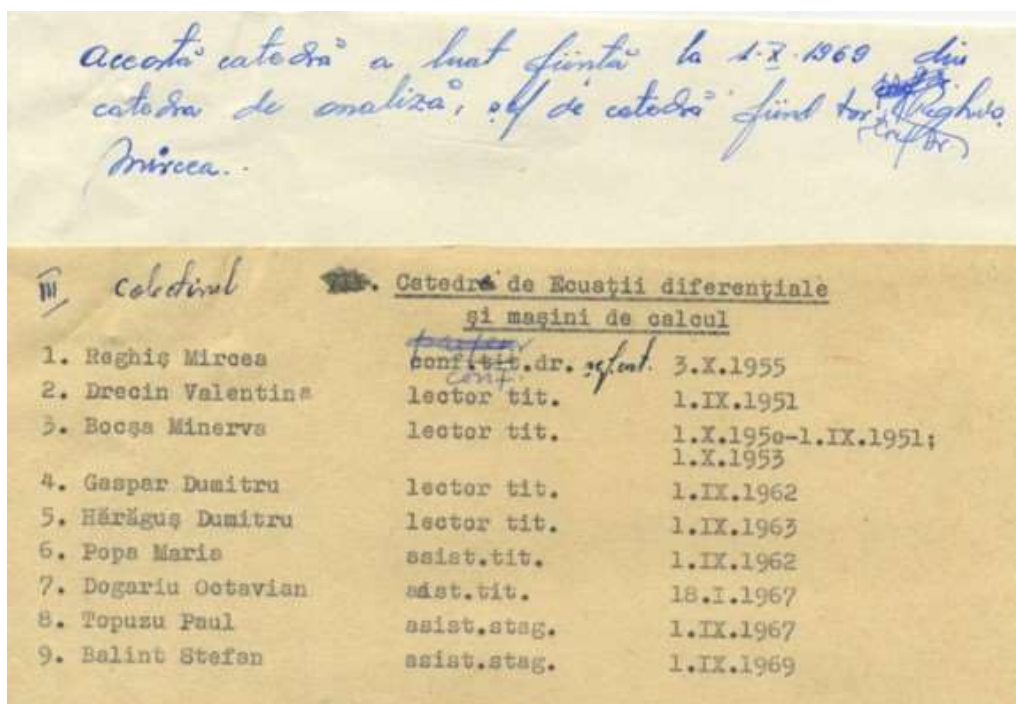 Această catedră a luat ființă la 1.X.1969 din
catedra de analiză, șef de catedră fiind Reghiș
Mircea.
III Colectivul . Catedra de Ecuații diferențiale
și mașini de calcul
1. Reghiș Mircea conf.tit.dr. 3.X.1955
conf.
2. Drecin Valentina lector tit. 1.IX.1951
3. Bocșa Minerva lector tit. 1.X.195o-1.IX.1951;
1.X.1953
4. Gaspar Dumitru lector tit. 1.IX.1962
5. Hărăguș Dumitru lector tit. 1.IX.1963
6. Popa Maria asist.tit. 1.IX.1962
7. Dogariu Octavian asist.tit. 18.I.1967
8. Topuzu Paul asist.stag. 1.IX.1967
9. Balint Stefan asist.stag. 1.IX.1969